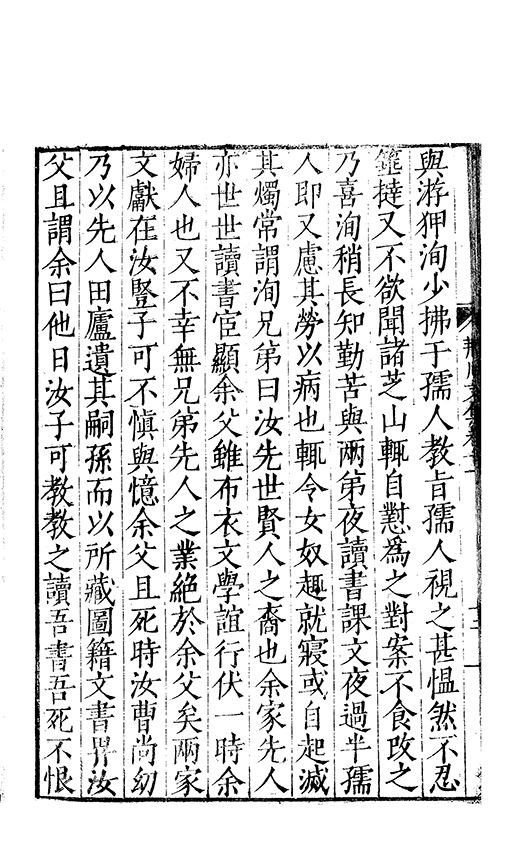 與游狎洵少拂于孺人教旨孺人視之甚愠然不忍
箠撻又不欲聞諸芝山輒自懟爲之對案不食攺之
乃喜洵稍長知勤苦與兩弟夜讀書課文夜過半孺
人即又慮其勞以病也輒令女奴趣就寢或自起滅
其燭常謂洵兄弟曰汝先世賢人之裔也余家先人
亦世世讀書宦顯余父雖布衣文學誼行伏一時余
婦人也又不幸無兄弟先人之業絕於余父矣兩家
文獻在汝豎子可不愼與憶余父且死時汝曹尚幼
乃以先人田廬遺其嗣孫而以所藏圖籍文書畀汝
父且謂余曰他日汝子可教教之讀吾書吾死不恨